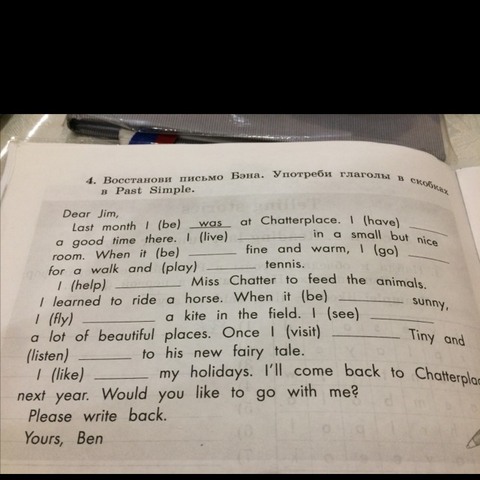 4. Восстанови письмо Бэна. Употреби глаголы в скобках
в Past Simple.
Dear Jim,
Last month I (be) was at Chatterplace. I (have) ____
a good time there. I (live) ________ in a small but nice
room. When it (be) ______ fine and warm, I (go) ____
for a walk and (play) ______ tennis.
I (help) ________ Miss Chatter to feed the animals.
I learned to ride a horse. When it (be) ________ sunny,
I (fly) ________ a kite in the field. I (see) ________
a lot of beautiful places. Once I (visit) ________ Tiny and
(listen) ______ to his new fairy tale.
I (like) ______ my holidays. I'll come back to Chatterplac
next year. Would you like to go with me?
Please write back.
Yours, Ben